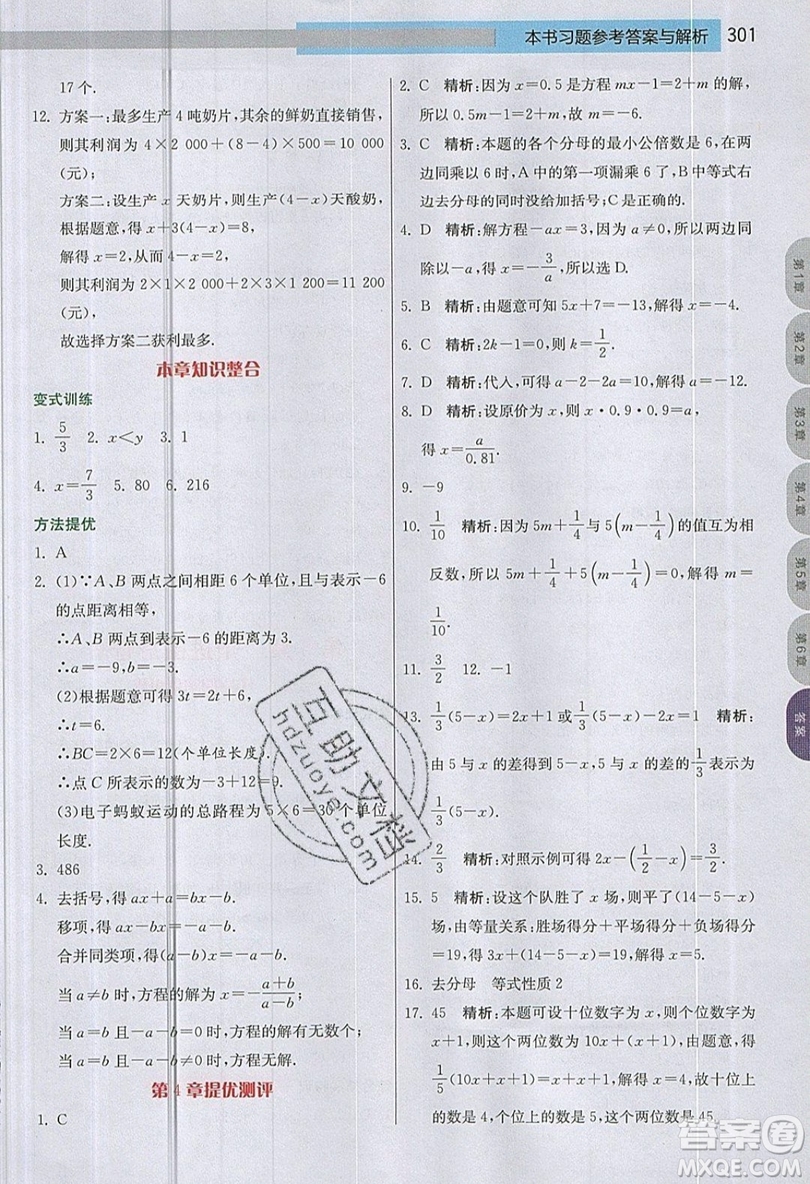 本书习题参考答案与解析 301
17个.
12. 方案一:最多生产4吨奶片,其余的鲜奶直接销售,
则其利润为4×2 000+(8-4)×500=10 000
(元);
方案二:设生产x天奶片,则生产(4-x)天酸奶,
根据题意,得x+3(4-x)=8,
解得x=2,从而4-x=2,
则其利润为2×1×2 000+2×3×1 200=11 200
(元),
故选择方案二获利最多.
本章知识整合
变式训练
1. 5/3 2. x<y 3. 1
4. x=7/3 5. 80 6. 216
方法提优
1. A
2. (1)∵A、B两点之间相距6个单位,且与表示-6
的点距离相等,
∴A、B两点到表示-6的距离为3.
∴a=-9,b=-3.
(2)根据题意可得3t=2t+6,
∴t=6.
∴BC=2×6=12(个单位长度).
∴点C所表示的数为-3+12=9.
(3)电子蚂蚁运动的总路程为5×6=30个单位
长度.
3. 486
4. 去括号,得ax+a=bx-b.
移项,得ax-bx=-a-b.
合并同类项,得(a-b)x=-a-b.
当a≠b时,方程的解为x=-(a+b)/(a-b);
当a=b且-a-b=0时,方程的解有无数个;
当a=b且-a-b≠0时,方程无解.
第4章提优测评
1. C
2. C 精析:因为x=0.5是方程mx-1=2+m的解,
所以0.5m-1=2+m.
3. C 精析:本题的各个分母的最小公倍数是6,在两
边同乘6时,A中的第一项漏乘6了,B中等式右
边去分母的同时没给加括号;C是正确的.
4. D 精析:解方程-ax=3,因为a≠0,所以两边同
除以-a,得x=-3/a,所以选D.
5. B 精析:由题意可知5x+7=-13,解得x=-4.
6. C 精析:2k-1=0,所以k=1/2.
7. D 精析:代入,可得a-2=2a+10,解得a=-12.
8. D 精析:设原价为x,则x·0.9·0.9=a,解
得x=a/0.81.
9. -9
10. 1/10 精析:因为5m+1/4与5(m-1/4)的值互为相
反数,所以5m+1/4+5(m-1/4)=0,解得m=
1/10.
11. 3/2 12. -1
13. 1/3(5-x)=2x+1或1/3(5-x)-2x=1 精析:
由5与x的差得到5-x,5与x的差的1/3表示为
1/3(5-x).
14. 2/3 精析:对照示例可得2x-(1/2-x)=3/2.
15. 5 精析:设这个队胜了x场,则平了(14-5-x)
场,由等量关系:胜场得分+平场得分+负场得分
=19,得3x+(14-5-x)=19.解得x=5.
16. 去分母 等式性质2
17. 45 精析:本题可设十位数字为x,则个位数字为
x+1,则这个两位数为10x+(x+1),由题意,得
1/5(10x+x+1)=x+x+1,解得x=4,故十位上
的数是4,个位上的数是5,这个两位数是45.
第1章
第2章
第3章
第4章
第5章
第6章
答案
互助文档
hdzuoye.com
答案圈
MXQE.COM